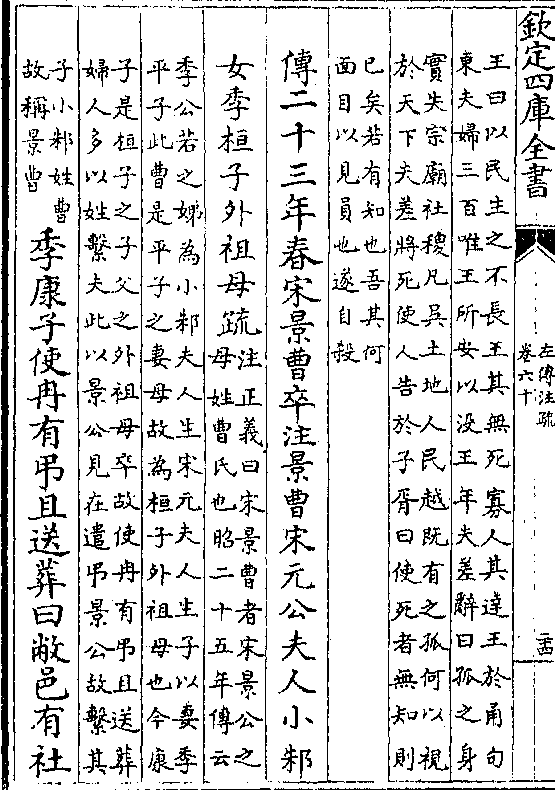 欽定四庫全書
左傳注疏
卷六十
王曰以民生之不長王其無死寡人其達王於甬句
東夫婦三百唯王所安以没王年夫差辭曰孤之身
實失宗廟社稷凡吳土地人民越既有之孤何以視
於天下夫差將死使人告於子胥曰使死者無知則
已矣若有知也吾其何
面目以見員也遂自殺
傳二十三年春宋景曹卒注景曹宋元公夫人小邾
女季桓子外祖母疏
注正義曰宋景曹者宋景公之
母姓曹氏也昭二十五年傳云
季公若之姊為小邾夫人生宋元夫人生子以妻季
平子此曹是平子之妻母故為桓子外祖母也今康
子是桓子之子父之外祖母卒故使冉有弔且送葬
婦人多以姓繫夫此以景公見在遣弔景公故繫其
子小邾姓曹
故稱景曹
季康子使冉有弔且送葬曰敝邑有社